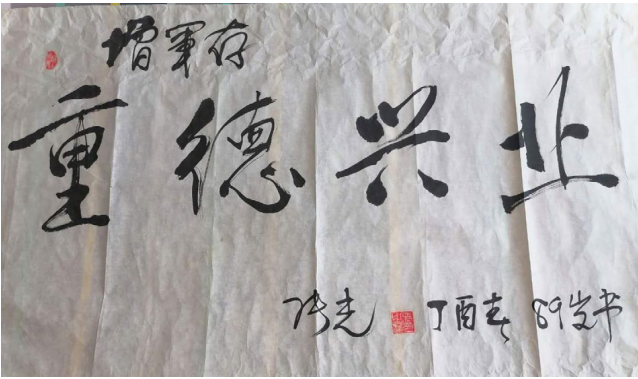 增軍存
重德兴业
张光 丁酉春 89岁书